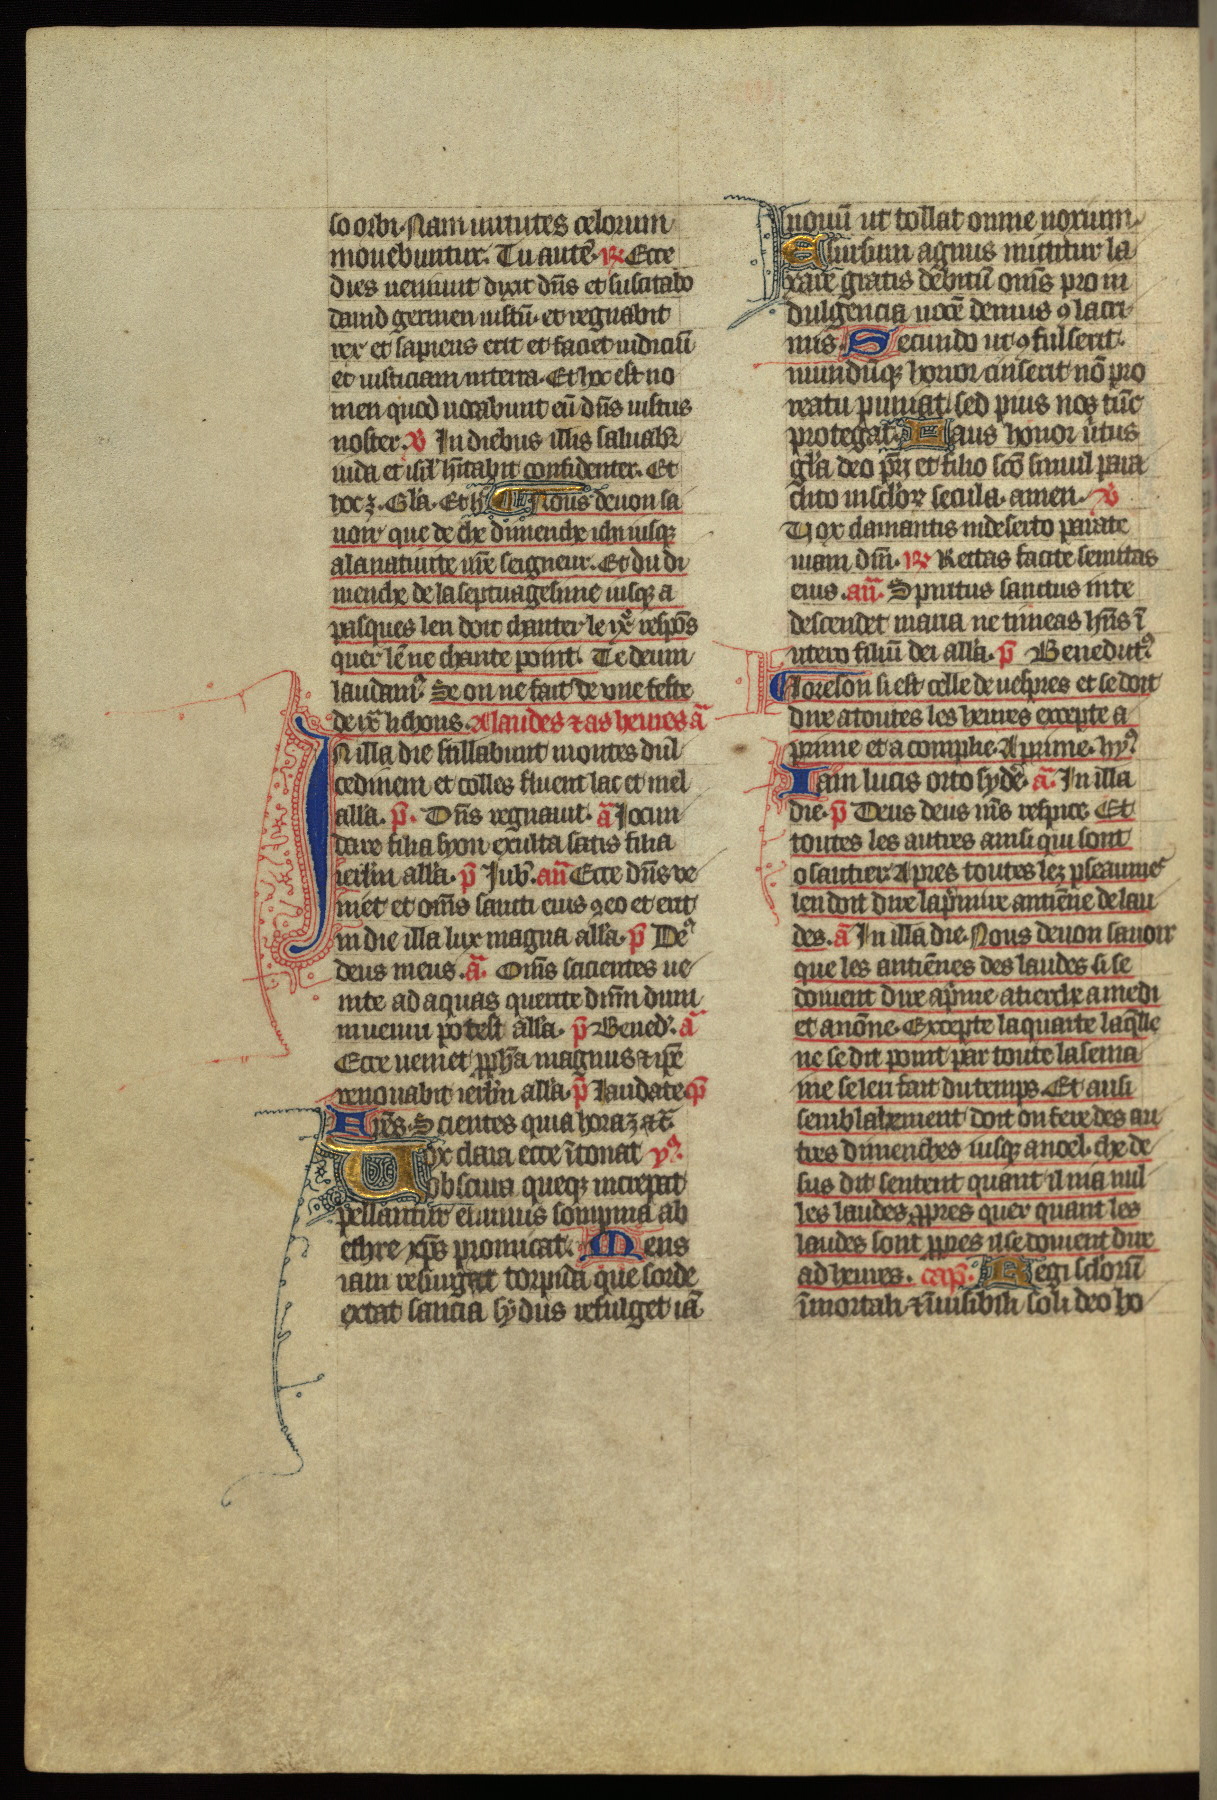 so orbi. Nam uirtutes celorum
mouebuntur. Tu autē. R Ecce
dies ueniunt dixit dn̄s et suscitabo
dauid germen iustū. et regnabit
rex et sapiens erit et faciet iudiciū
et iusticiam in terra. Et hoc est no
men quod uocabunt eū dn̄s iustus
noster. V In diebus illis saluabr̄
iuda et isrł hītabit confidenter. Et
hoc ꝫ. Gła. Et h̄ Nous deuon sa
uoir que de che dimenche ichi iusqꝫ
a la natiuite nr̄e seigneur. Et du di
menche de la septuagesime iusqꝫ a
pasques len doit chanter le ixͤ respōs
quer lē ne chante point. Te deum
laudamꝰ. Se on ne fait de vne feste
de ix lichons. A laudes ⁊ as heures ā
In illa die stillabunt montes dul
cedinem et colles fluent lac et mel
ałła. p̄. Dn̄s regnauit. ā Iocun
dare filia syon exulta satis filia
ierlm̄ ałła. p̄ Iub̄. an̄ Ecce dn̄s ve
niet et om̄s sancti eius ꝯ eo et erit
in die illa lux magna ałła. p̄ Deꝰ
deus meus. ā. Om̄s sicientes ue
nite ad aquas querite dn̄m dum
inueniri potest ałła. p̄ Bened̄. ā
Ecce ueniet ꝓph̄a magnus ⁊ ip̄e
renouabit ierlm̄ ałła. p̄ Laudate cp̄
Fr̄es. Scientes quia hora ꝫ ⁊c̄.
Vox clara ecce ītonat yꝰ.
obscura queqꝫ increpat
pellantur eminus sompnia ab
ethre xp̄s promicat. Mens
iam resurgat torpida que sorde
extat saucia sydus refulget iā
nouū ut tollat omne noxium.
E sursum agnus mittitur la
xare gratis debitū om̄s pro in
dulgencia uocē demus ꝯ lacri
mis. Secundo ut ꝯ fulserit
mundūqꝫ horror cinxerit nō pro
reatu puniat sed pius nos tūc
protegat. Laus honor uirtus
gła deo pr̄i et filio sc̄o simul para
clito in sc̄loꝝ secula. amen. V
Vox clamantis in deserto parate
uiam dn̄i. R Rectas facite semitas
eius. an̄. Spiritus sanctus in te
descendet maria ne timeas hn̄s ī
utero filiū dei ałła. p̄ Benedictꝰ
Loreson si est celle de uespres et se doit
dire a toutes les heures excepte a
prime et a complie. A prime. hyꝰ
Iam lucis orto sydē. ā. In illa
die. p̄ Deus deus m̄s respice. Et
toutes les autres ainsi qui sont
o sautier. A pres toutes lez pseaumeˢ
len doit dire la prīniere antiēne de lau
des. ā In illa die. Nous deuon sauoir
que les antiēnes des laudes si se
doiuent dire a prīme a tierche a medi
et a nōne. Excepte la quarte laq̄lle
ne se dit point par toute la semai
ne se len fait du temps. Et ausi
semblablement doit on fere des au
tres dimenches iusqꝫ a noel. che de
sus dit sentent quant il nia nul
les laudes ꝓpres quer quant les
laudes sont ꝓpres il se doiuent dire
ad heures. cap̄. Regi sc̄lorū
īmortali ⁊ īuisibili soli deo ho